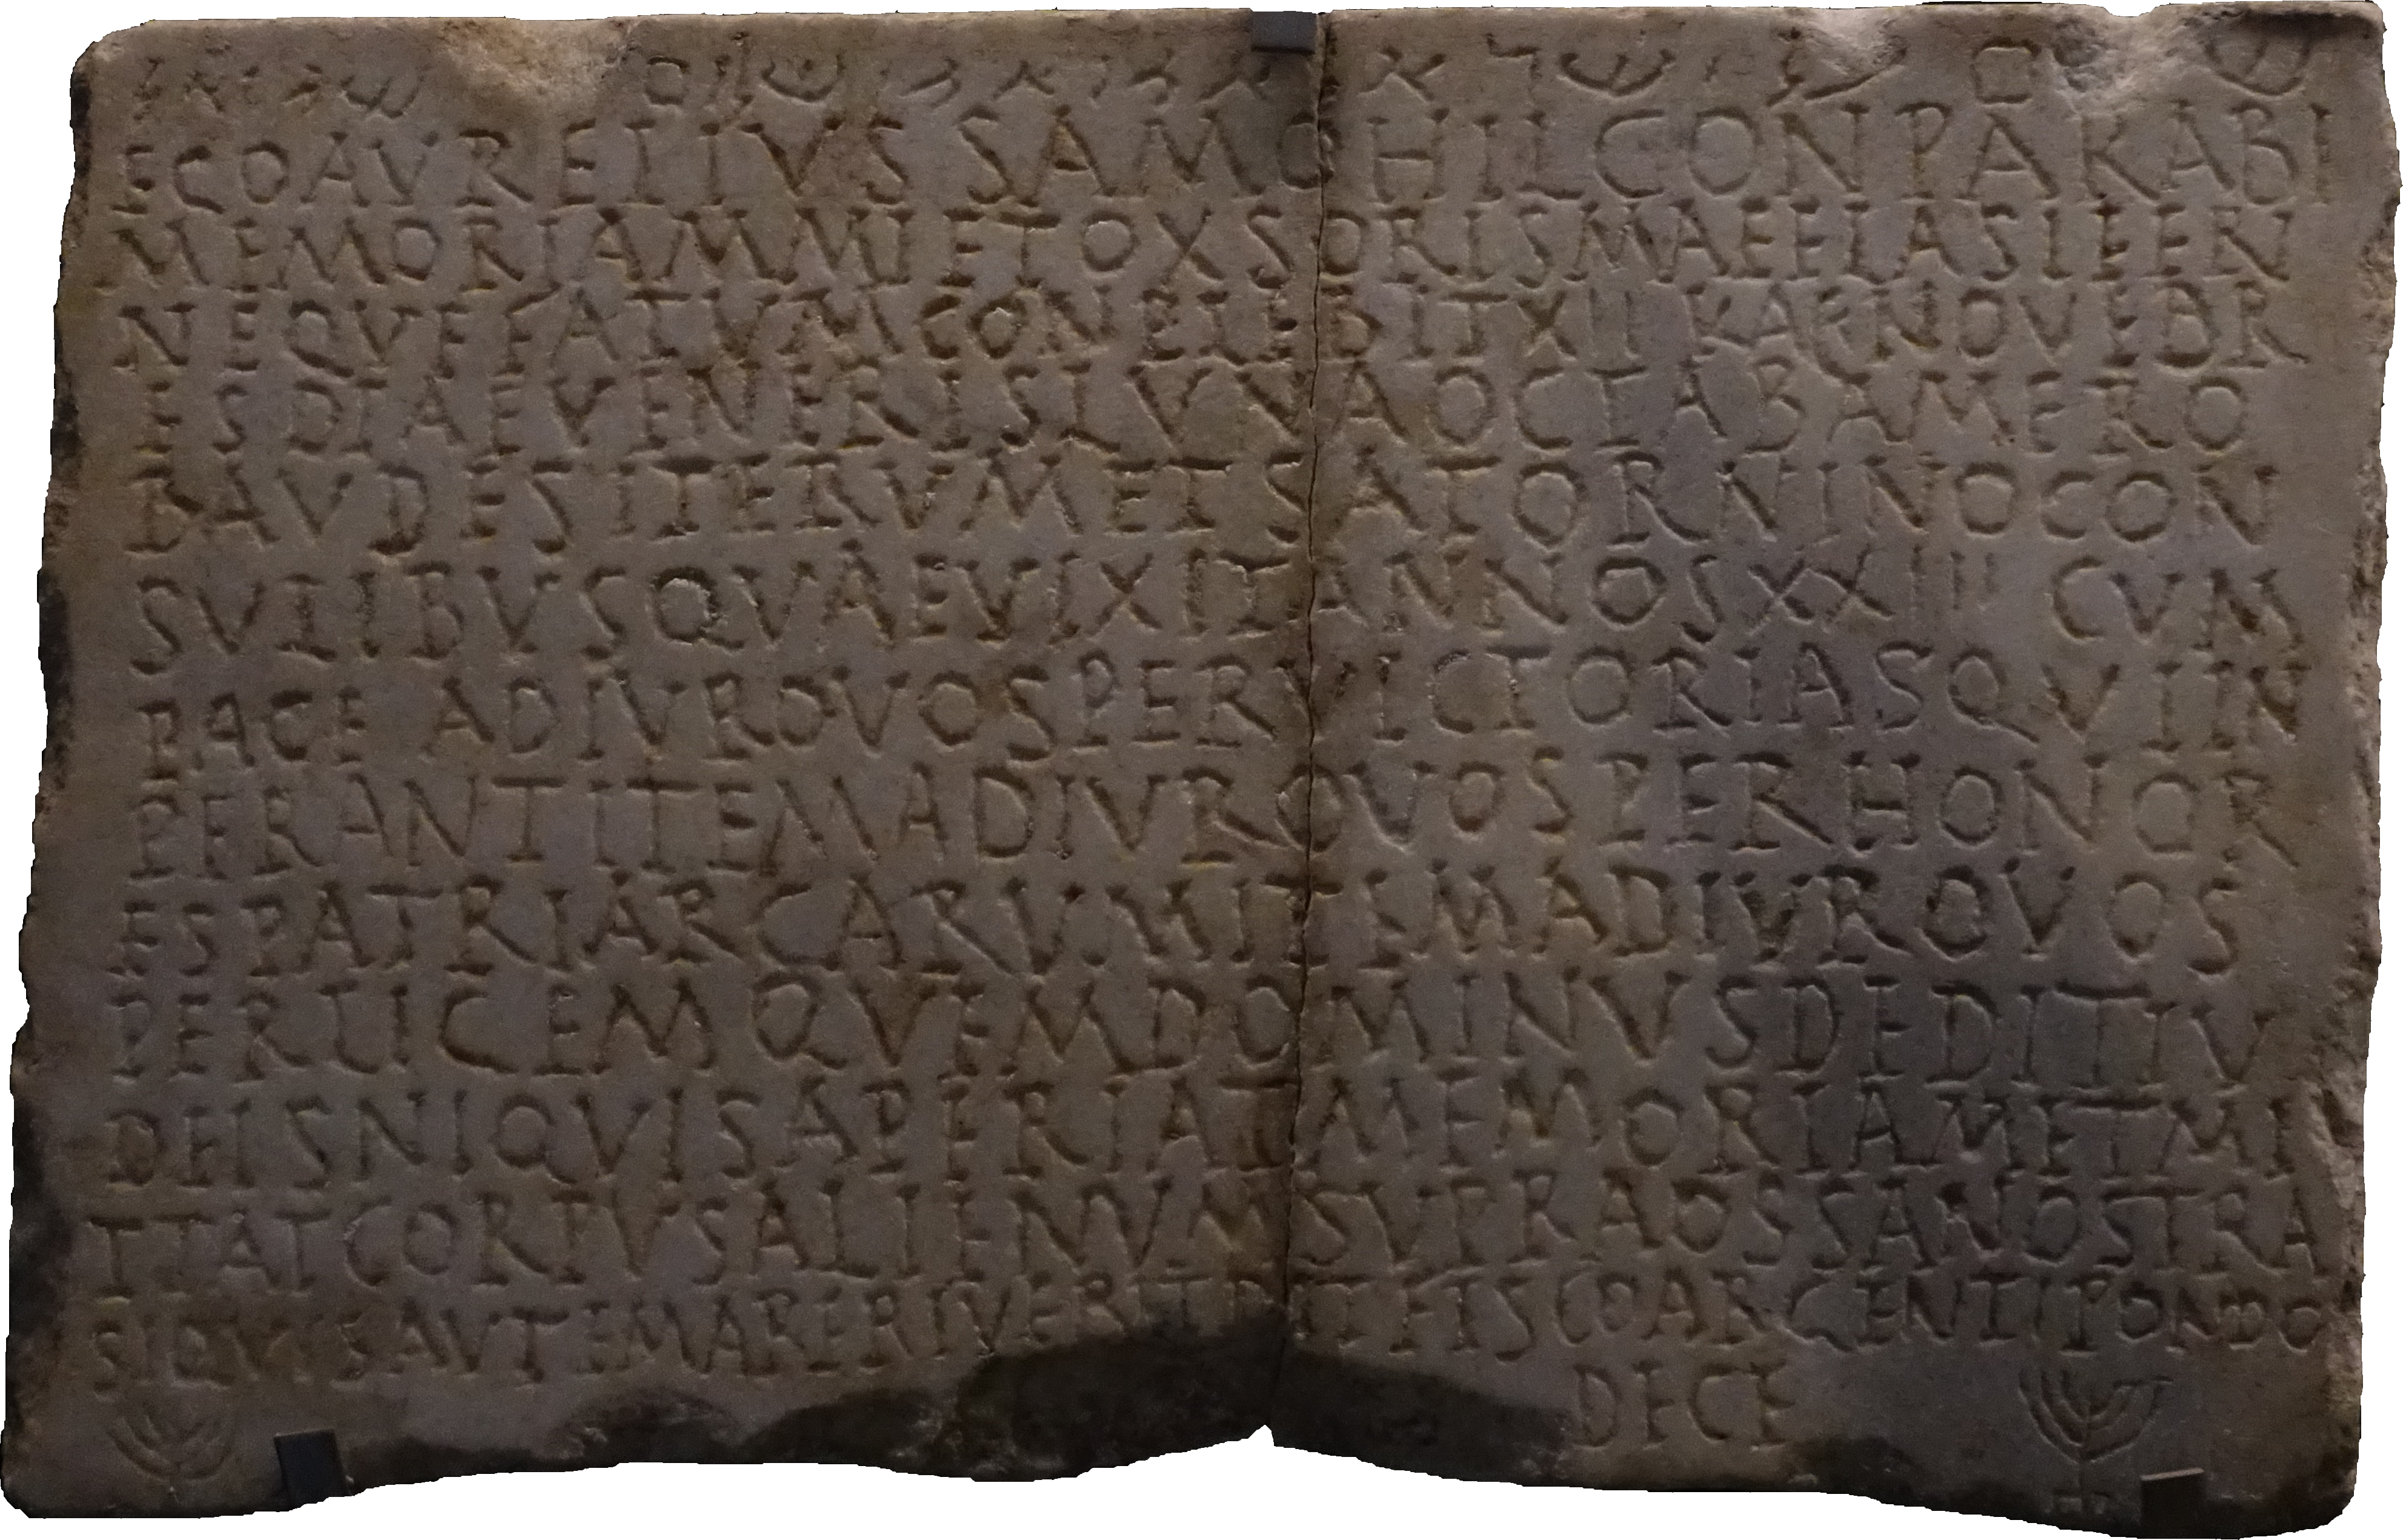 שלום על ישראל אמן אמן שלום שמואל
EGO AVRELIVS SAMOHIL CONPARABI
MEMORIAM MI ET OXSORIS MAEE LASIFERI
NE QVE FATVM CONPLEBIT XII KAL NOVEBR
ES DIAE VENERIS LVNA OCTABA MERO
BAVDES ITERVM ET SATORNINO CON
SVLIBVS QVAE VIXIT ANNOS XXIII CVM
PACE ADIVRO VOS PER VICTORIAS QVI IN
PERANT ITEM ADIVRO VOS PER HONOR
ES PATRIARCARVM ITEM ADIVRO VOS
PER LICEM QVEM DOMINVS DEDIT IV
DEIS NIQVIS APERIAT MEMORIAM ET MI
TTAT CORPVS ALIENVM SVPRA OSSA NOSTRA
SI QVIS AVTEM APERIVERIT DET FISCO ARGENTI PONDO
DECE